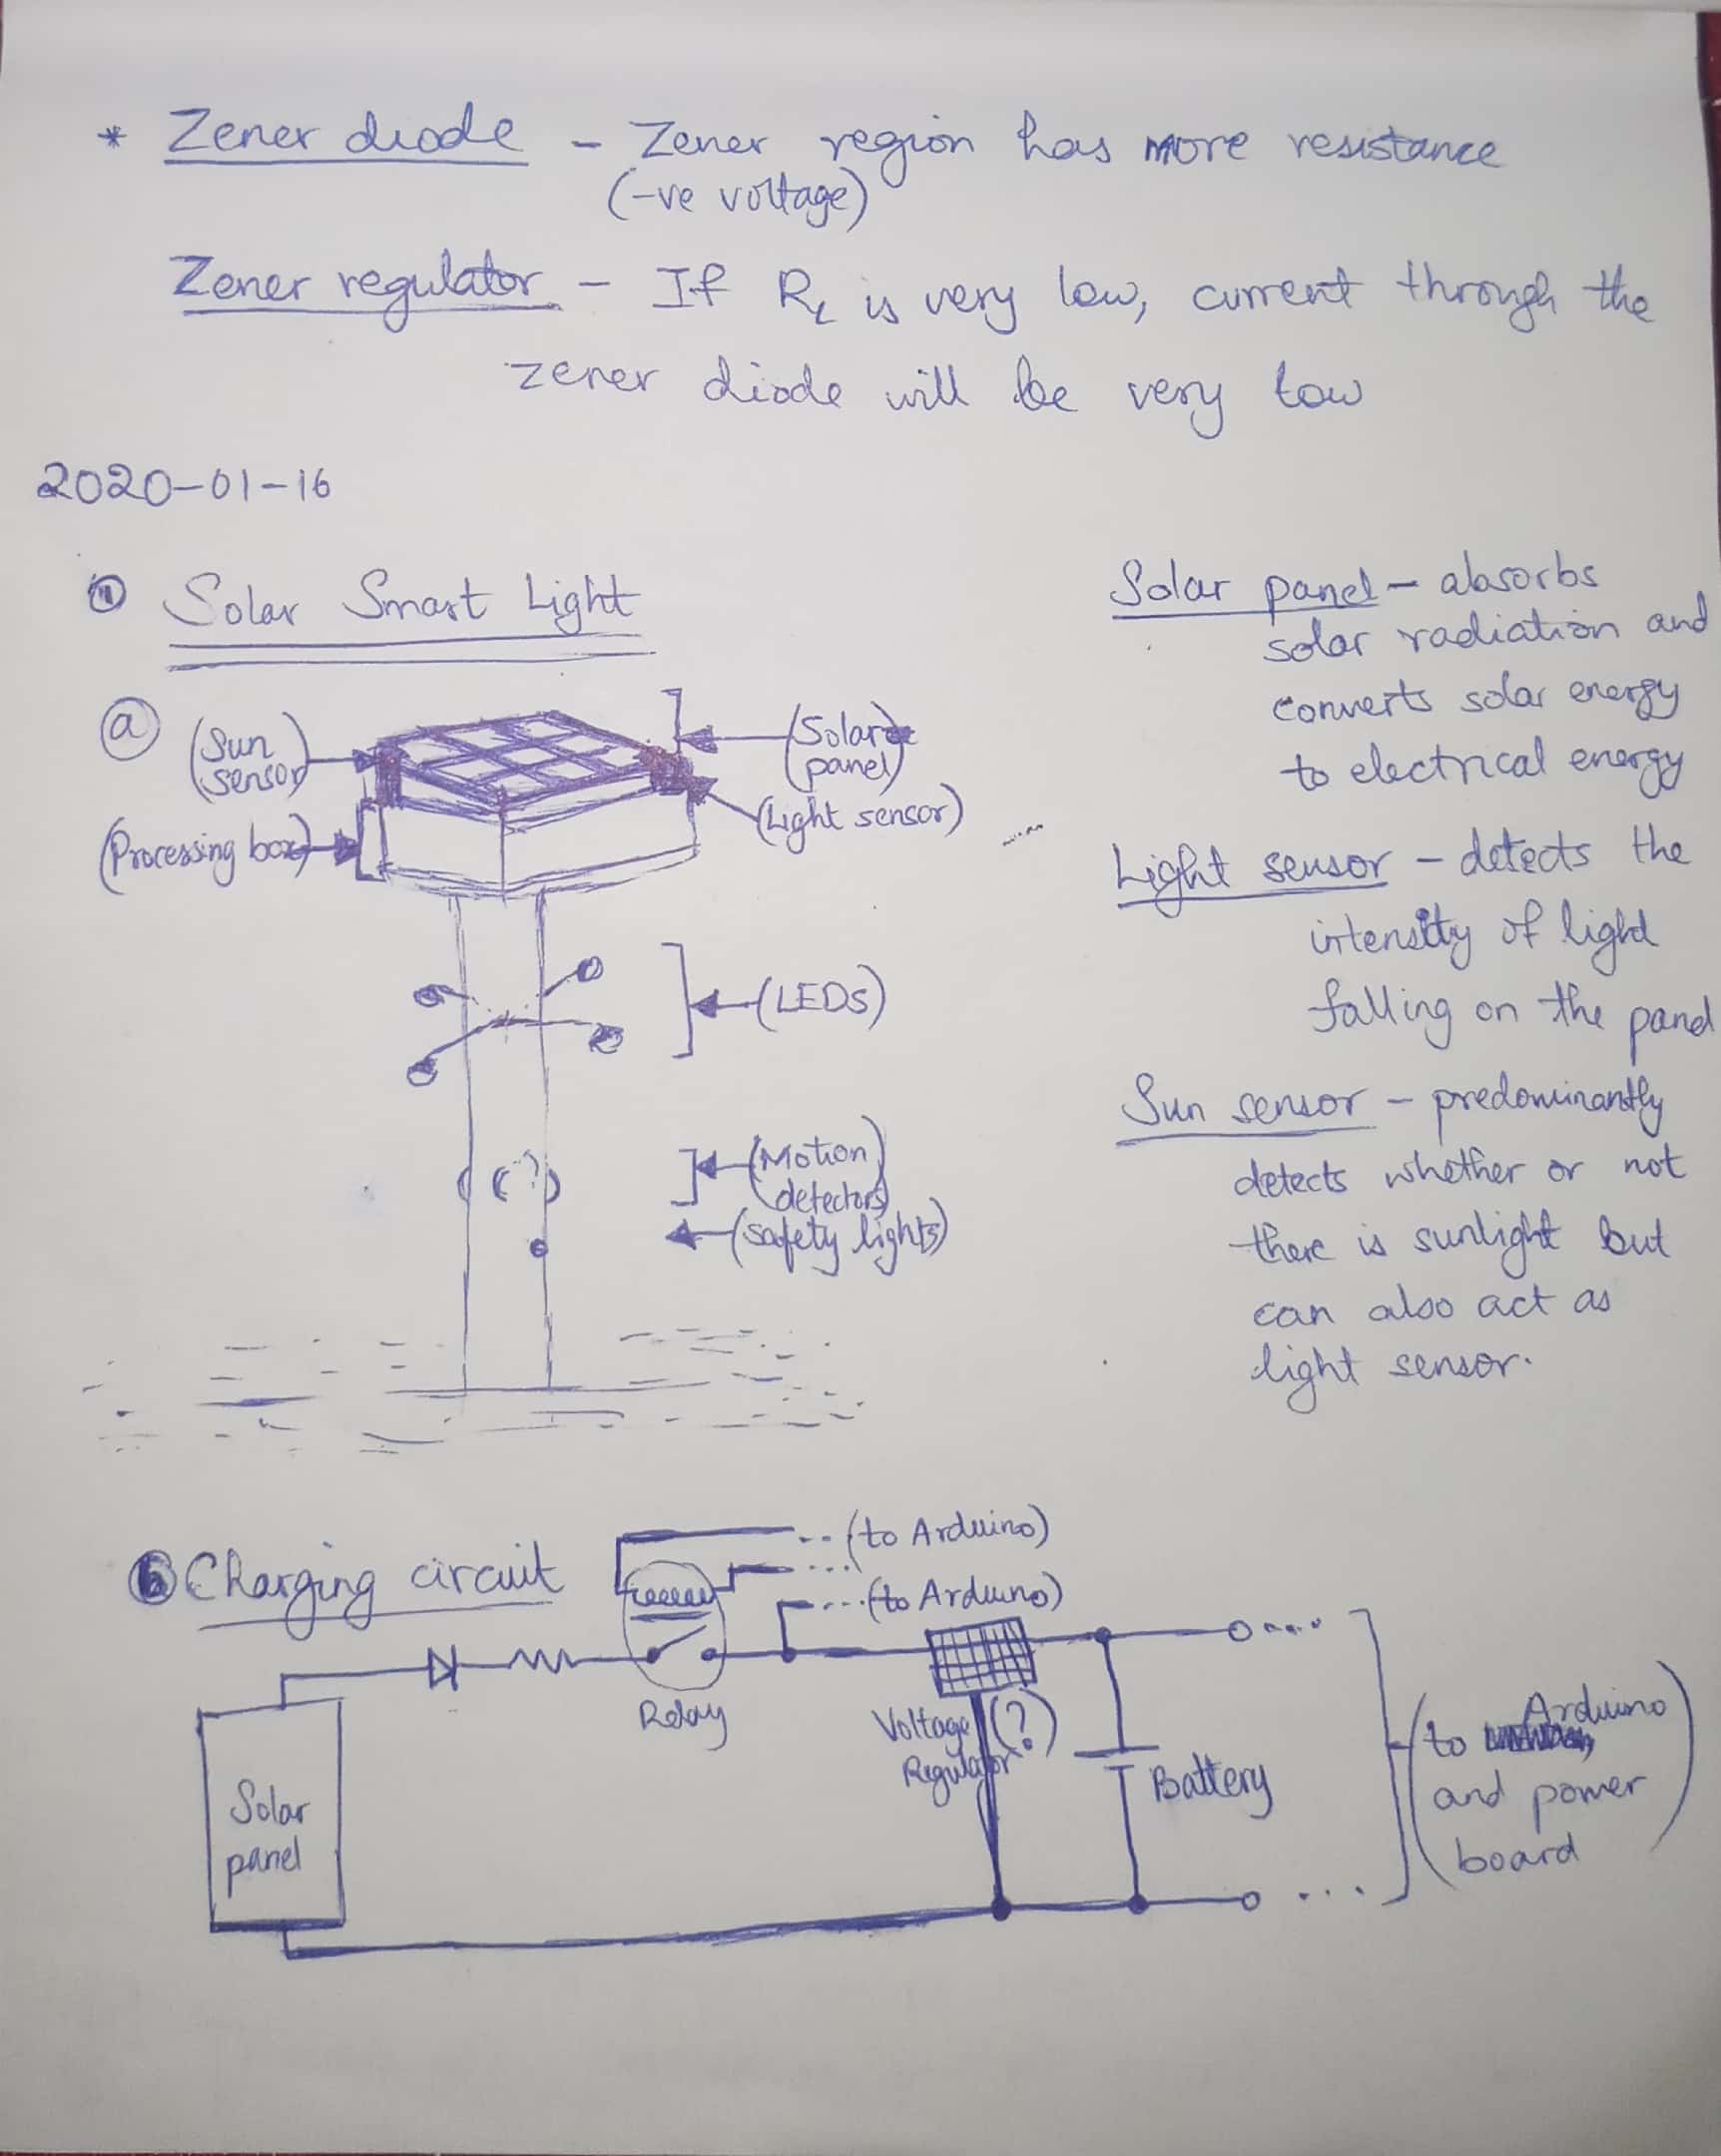 * Zener diode - Zener region has more resistance
(-ve voltage)
Zener regulator - If RL is very low, current through the
zener diode will be very low
2020-01-16
① Solar Smart Light
ⓐ
(Sun
sensor)
(Processing box)
(Solar
panel)
(Light sensor)
(LEDs)
(?)
(Motion
detectors)
(safety lights)
Solar panel - absorbs
solar radiation and
converts solar energy
to electrical energy
Light sensor - detects the
intensity of light
falling on the panel
Sun sensor - predominantly
detects whether or not
there is sunlight but
can also act as
light sensor.
ⓑ Charging circuit
... (to Arduino)
... (to Arduino)
Relay
Voltage (?)
Regulator
Battery
Solar
panel
(to Arduino
and power
board)